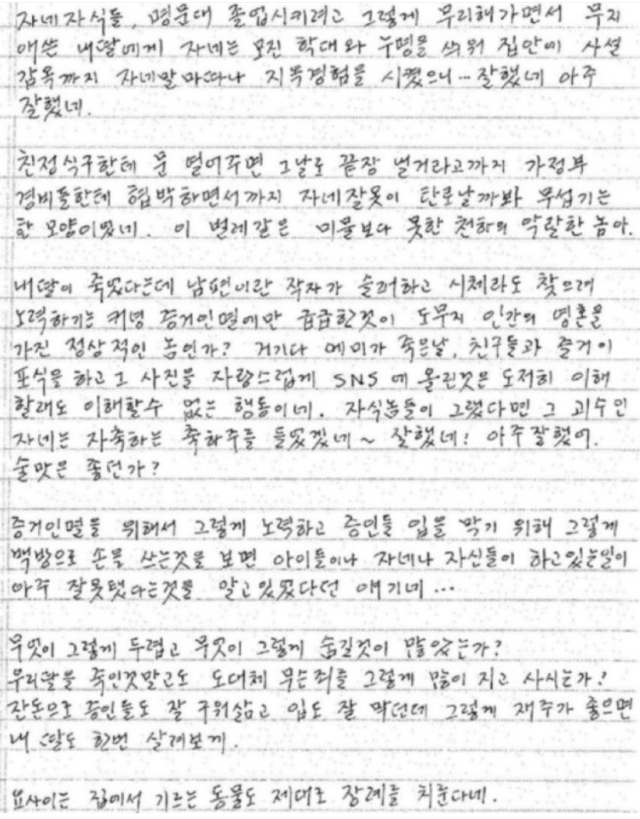 자네자식들, 명문대 졸업시키려고 그렇게 무리해가면서 무지
애쓴 내딸에게 자네는 모진 학대와 누명을 씌워 집안에 사설
감옥까지 자네말마따나 지옥경험을 시켰으니… 잘했네 아주
잘했네.
친정식구한테 문 열어주면 그날로 끝장 낼거라고까지 가정부
경비들한테 협박하면서까지 자네잘못이 탄로날까봐 무섭기는
한 모양이었네. 이 벌레같은 미물보다 못한 천하의 악랄한 놈아.
내딸이 죽었다는데 남편이란 작자가 슬퍼하고 시체라도 찾으려
노력하기는 커녕 증거인멸에만 급급한것이 도무지 인간의 영혼을
가진 정상적인 놈인가? 거기다 에미가 죽은날, 친구들과 즐거이
포식을 하고 그 사진을 자랑스럽게 SNS 에 올린것은 도저히 이해
할래도 이해할수 없는 행동이네. 자식놈들이 그랬다면 그 괴수인
자네는 자축하는 축하주를 들었겠네~ 잘했네! 아주잘했어.
술맛은 좋던가?
증거인멸을 위해서 그렇게 노력하고 증인들 입을 막기 위해 그렇게
백방으로 손을 쓰는것을 보면 아이들이나 자네나 자신들이 하고있는일이
아주 잘못됐다는것을 알고있었다던 얘기네…
무엇이 그렇게 두렵고 무엇이 그렇게 숨길것이 많았는가?
우리딸을 죽인것말고도 도대체 무슨죄를 그렇게 많이 지고 사시는가?
잔돈으로 증인들도 잘 구워삶고 입도 잘 막던데 그렇게 재주가 좋으면
내 딸도 한번 살려보게.
요사이는 집에서 기르는 동물도 제대로 장례를 치룬다네.